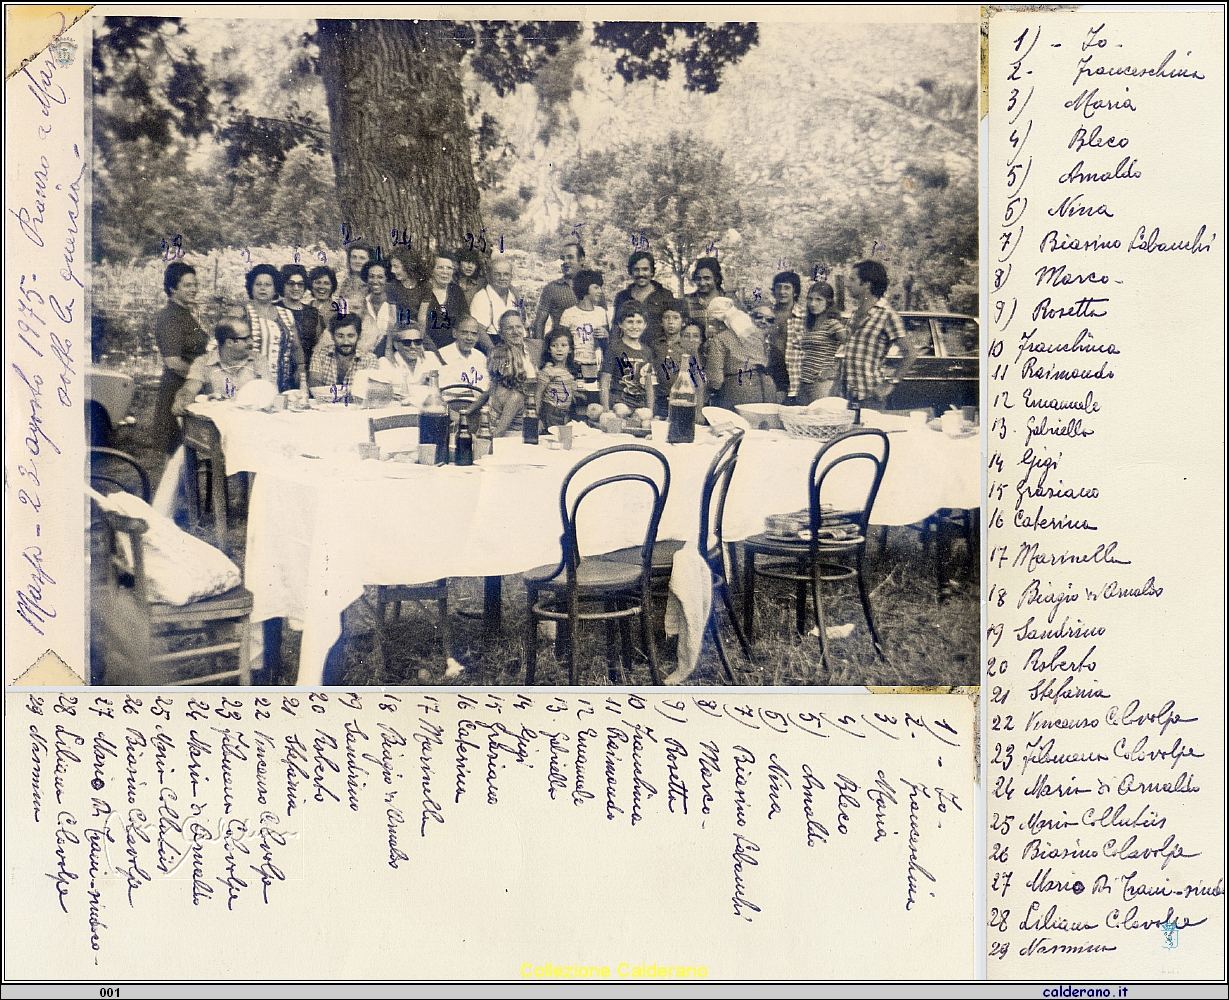 Marfo - 22 agosto 1975 - Pranzo a Marfo
sotto la quercia -
1) - Io -
2 - Franceschina
3) Maria
4) Bleco
5) Arnaldo
6) Nina
7) Biasino Labanchi
8) Marco -
9) Rosetta
10 Franchina
11 Raimondo
12 Emanuele
13. Gabriella
14 Gigi
15 Graziano
16 Caterina
17 Marinella
18 Biagio di Arnaldo
19 Sandrino
20 Roberto
21 Stefania
22 Vincenzo Colavolpe
23 Filomena Colavolpe
24 Maria di Arnaldo
25 Maria Collutiis
26 Biasino Colavolpe
27 Mario Di Trani - sind
28 Liliana Colavolpe
29 Nannina
1) - Io -
2 - Franceschina
3) Maria
4) Bleco
5) Arnaldo
6) Nina
7) Biasino Labanchi
8) Marco -
9) Rosetta
10 Franchina
11 Raimondo
12 Emanuele
13. Gabriella
14 Gigi
15 Graziano
16 Caterina
17 Marinella
18 Biagio di Arnaldo
19 Sandrino
20 Roberto
21 Stefania
22 Vincenzo Colavolpe
23 Filomena Colavolpe
24 Maria di Arnaldo
25 Maria Collutiis
26 Biasino Colavolpe
27 Mario Di Trani - sindaco -
28 Liliana Colavolpe
29 Nannina
Collezione Calderano
001
calderano.it